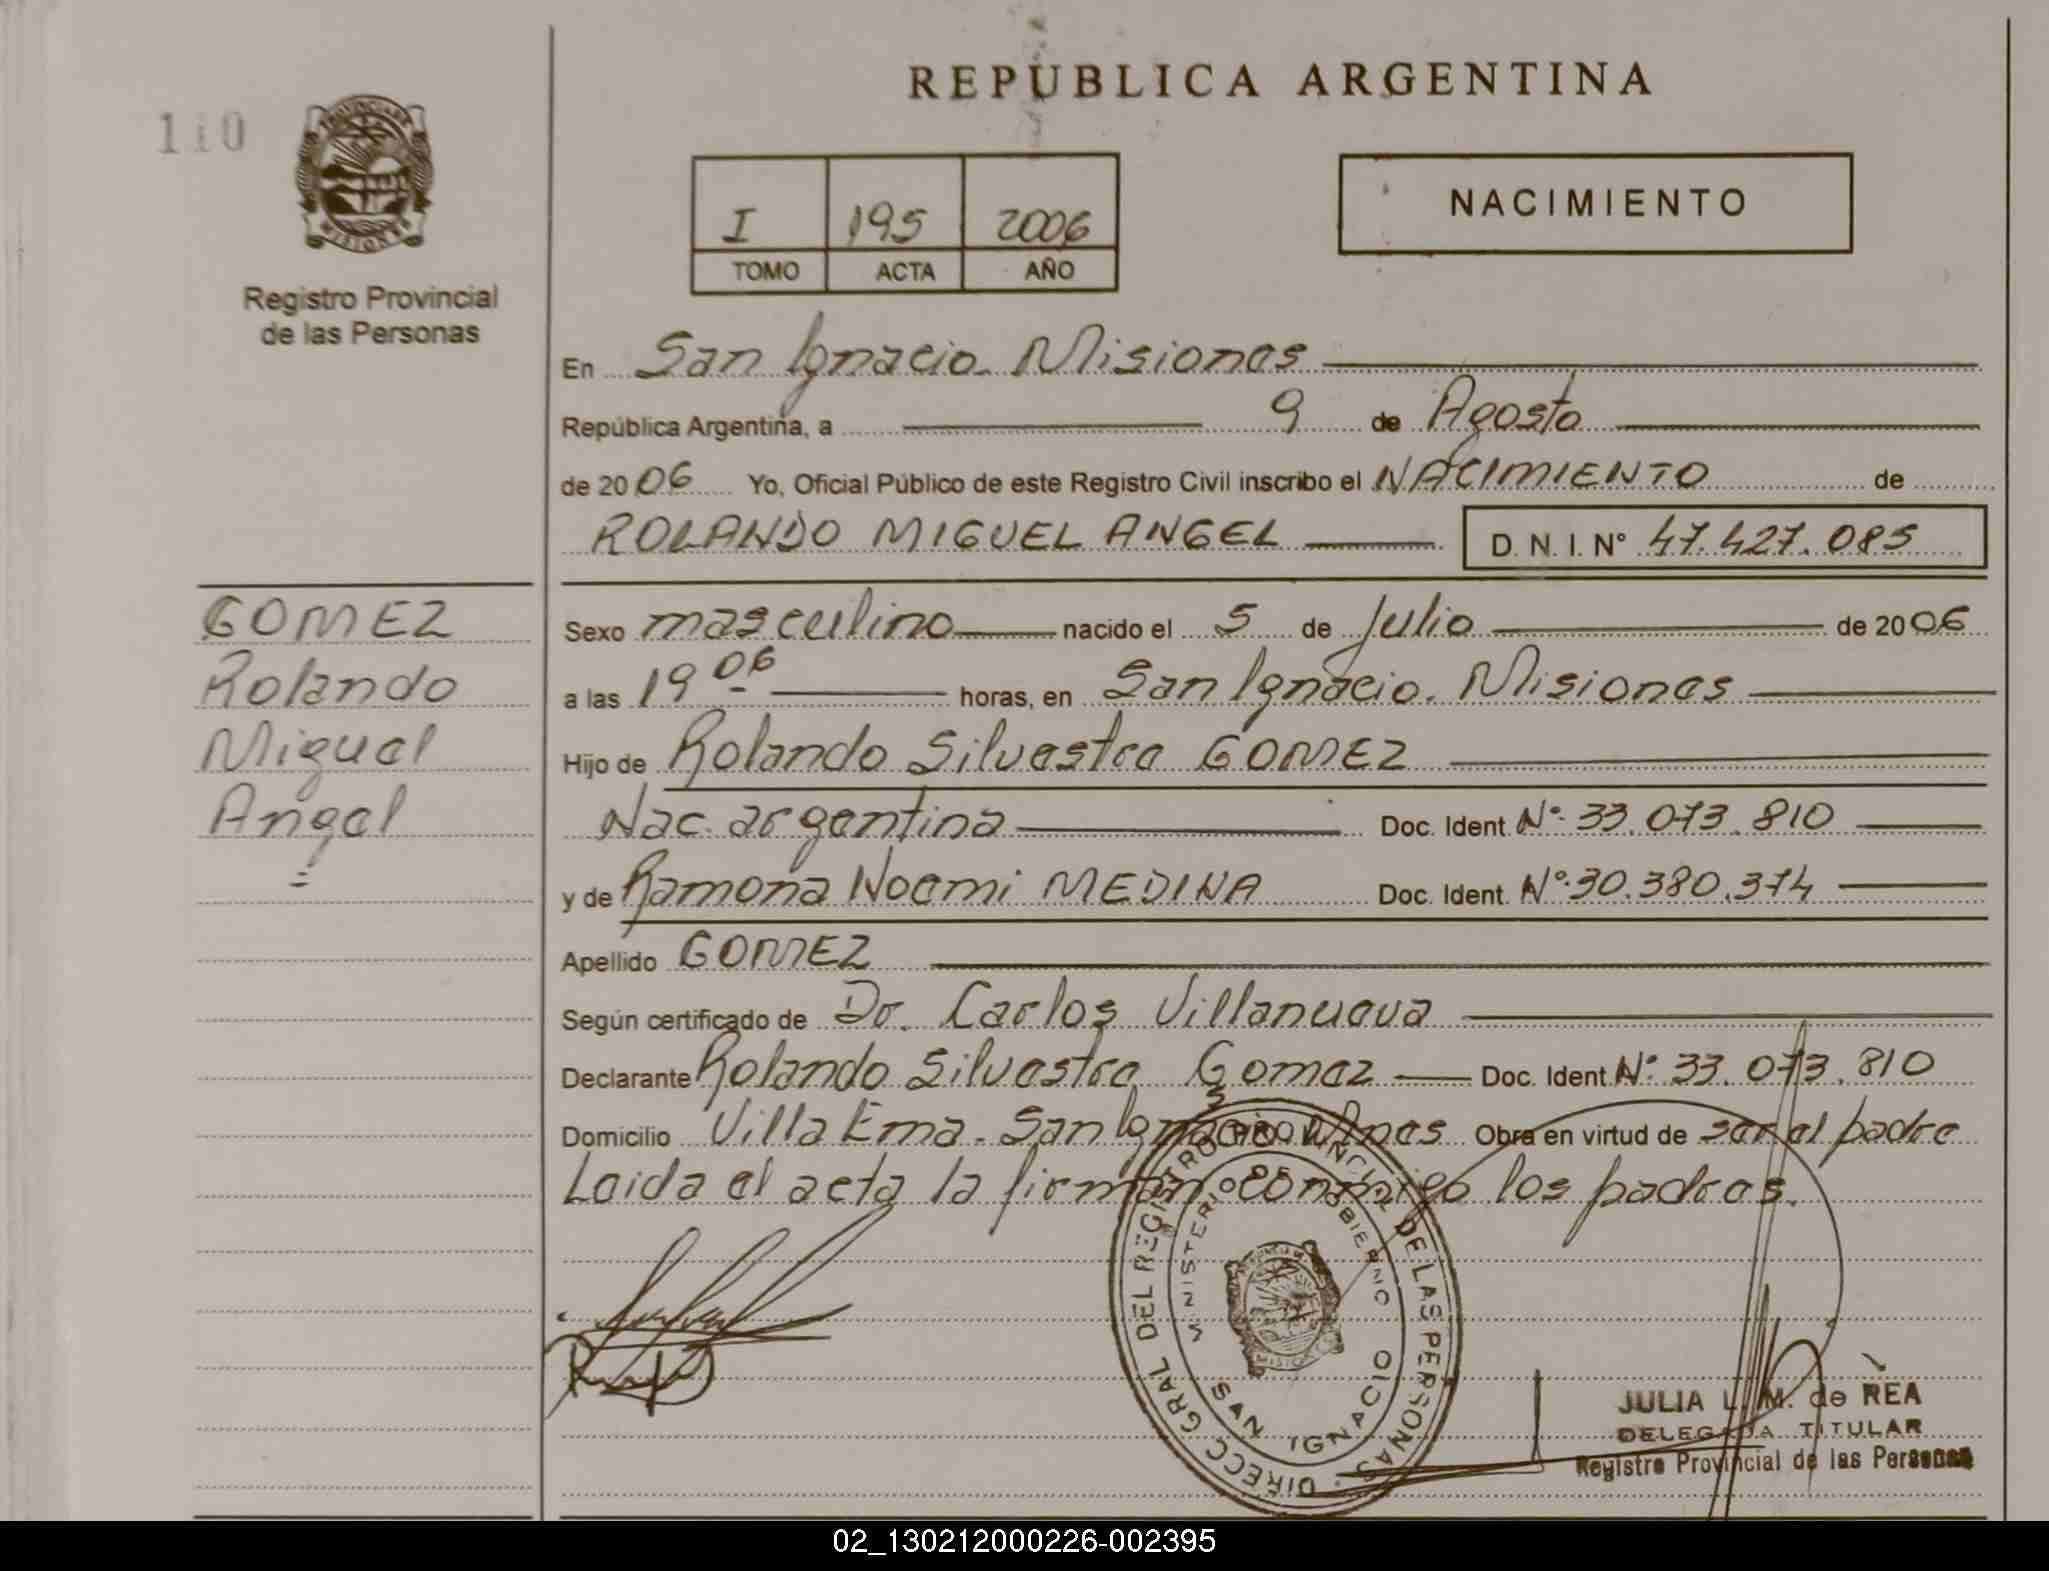 110
PROVINCIA DE
MISIONES
Registro Provincial
de las Personas
REPUBLICA ARGENTINA
I 195 2006
TOMO ACTA AÑO
NACIMIENTO
En San Ignacio. Misiones
República Argentina, a 9 de Agosto
de 2006 Yo, Oficial Público de este Registro Civil inscribo el NACIMIENTO de
ROLANDO MIGUEL ANGEL D. N. I. N° 47.427.085
GOMEZ
Rolando
Miguel
Angel
Sexo masculino nacido el 5 de Julio de 2006
a las 19 06 horas, en San Ignacio. Misiones
Hijo de Rolando Silvestre GOMEZ
Nac. argentina Doc. Ident. N°. 33.073.810
y de Ramona Noemi MEDINA Doc. Ident. N°. 30.380.374
Apellido GOMEZ
Según certificado de Dr. Carlos Villanueva
Declarante Rolando Silvestre Gomez Doc. Ident. N°. 33.073.810
Domicilio Villa Ema. San Ignacio Mnes Obra en virtud de ser el padre
Leida el acta la firman conmigo los padres.
DIRECC GRAL DEL REGISTRO PROVINCIAL DE LAS PERSONAS
MINISTERIO DE GOBIERNO
SAN IGNACIO
JULIA L. M. de REA
DELEGADA TITULAR
Registro Provincial de las Personas
02_130212000226-002395